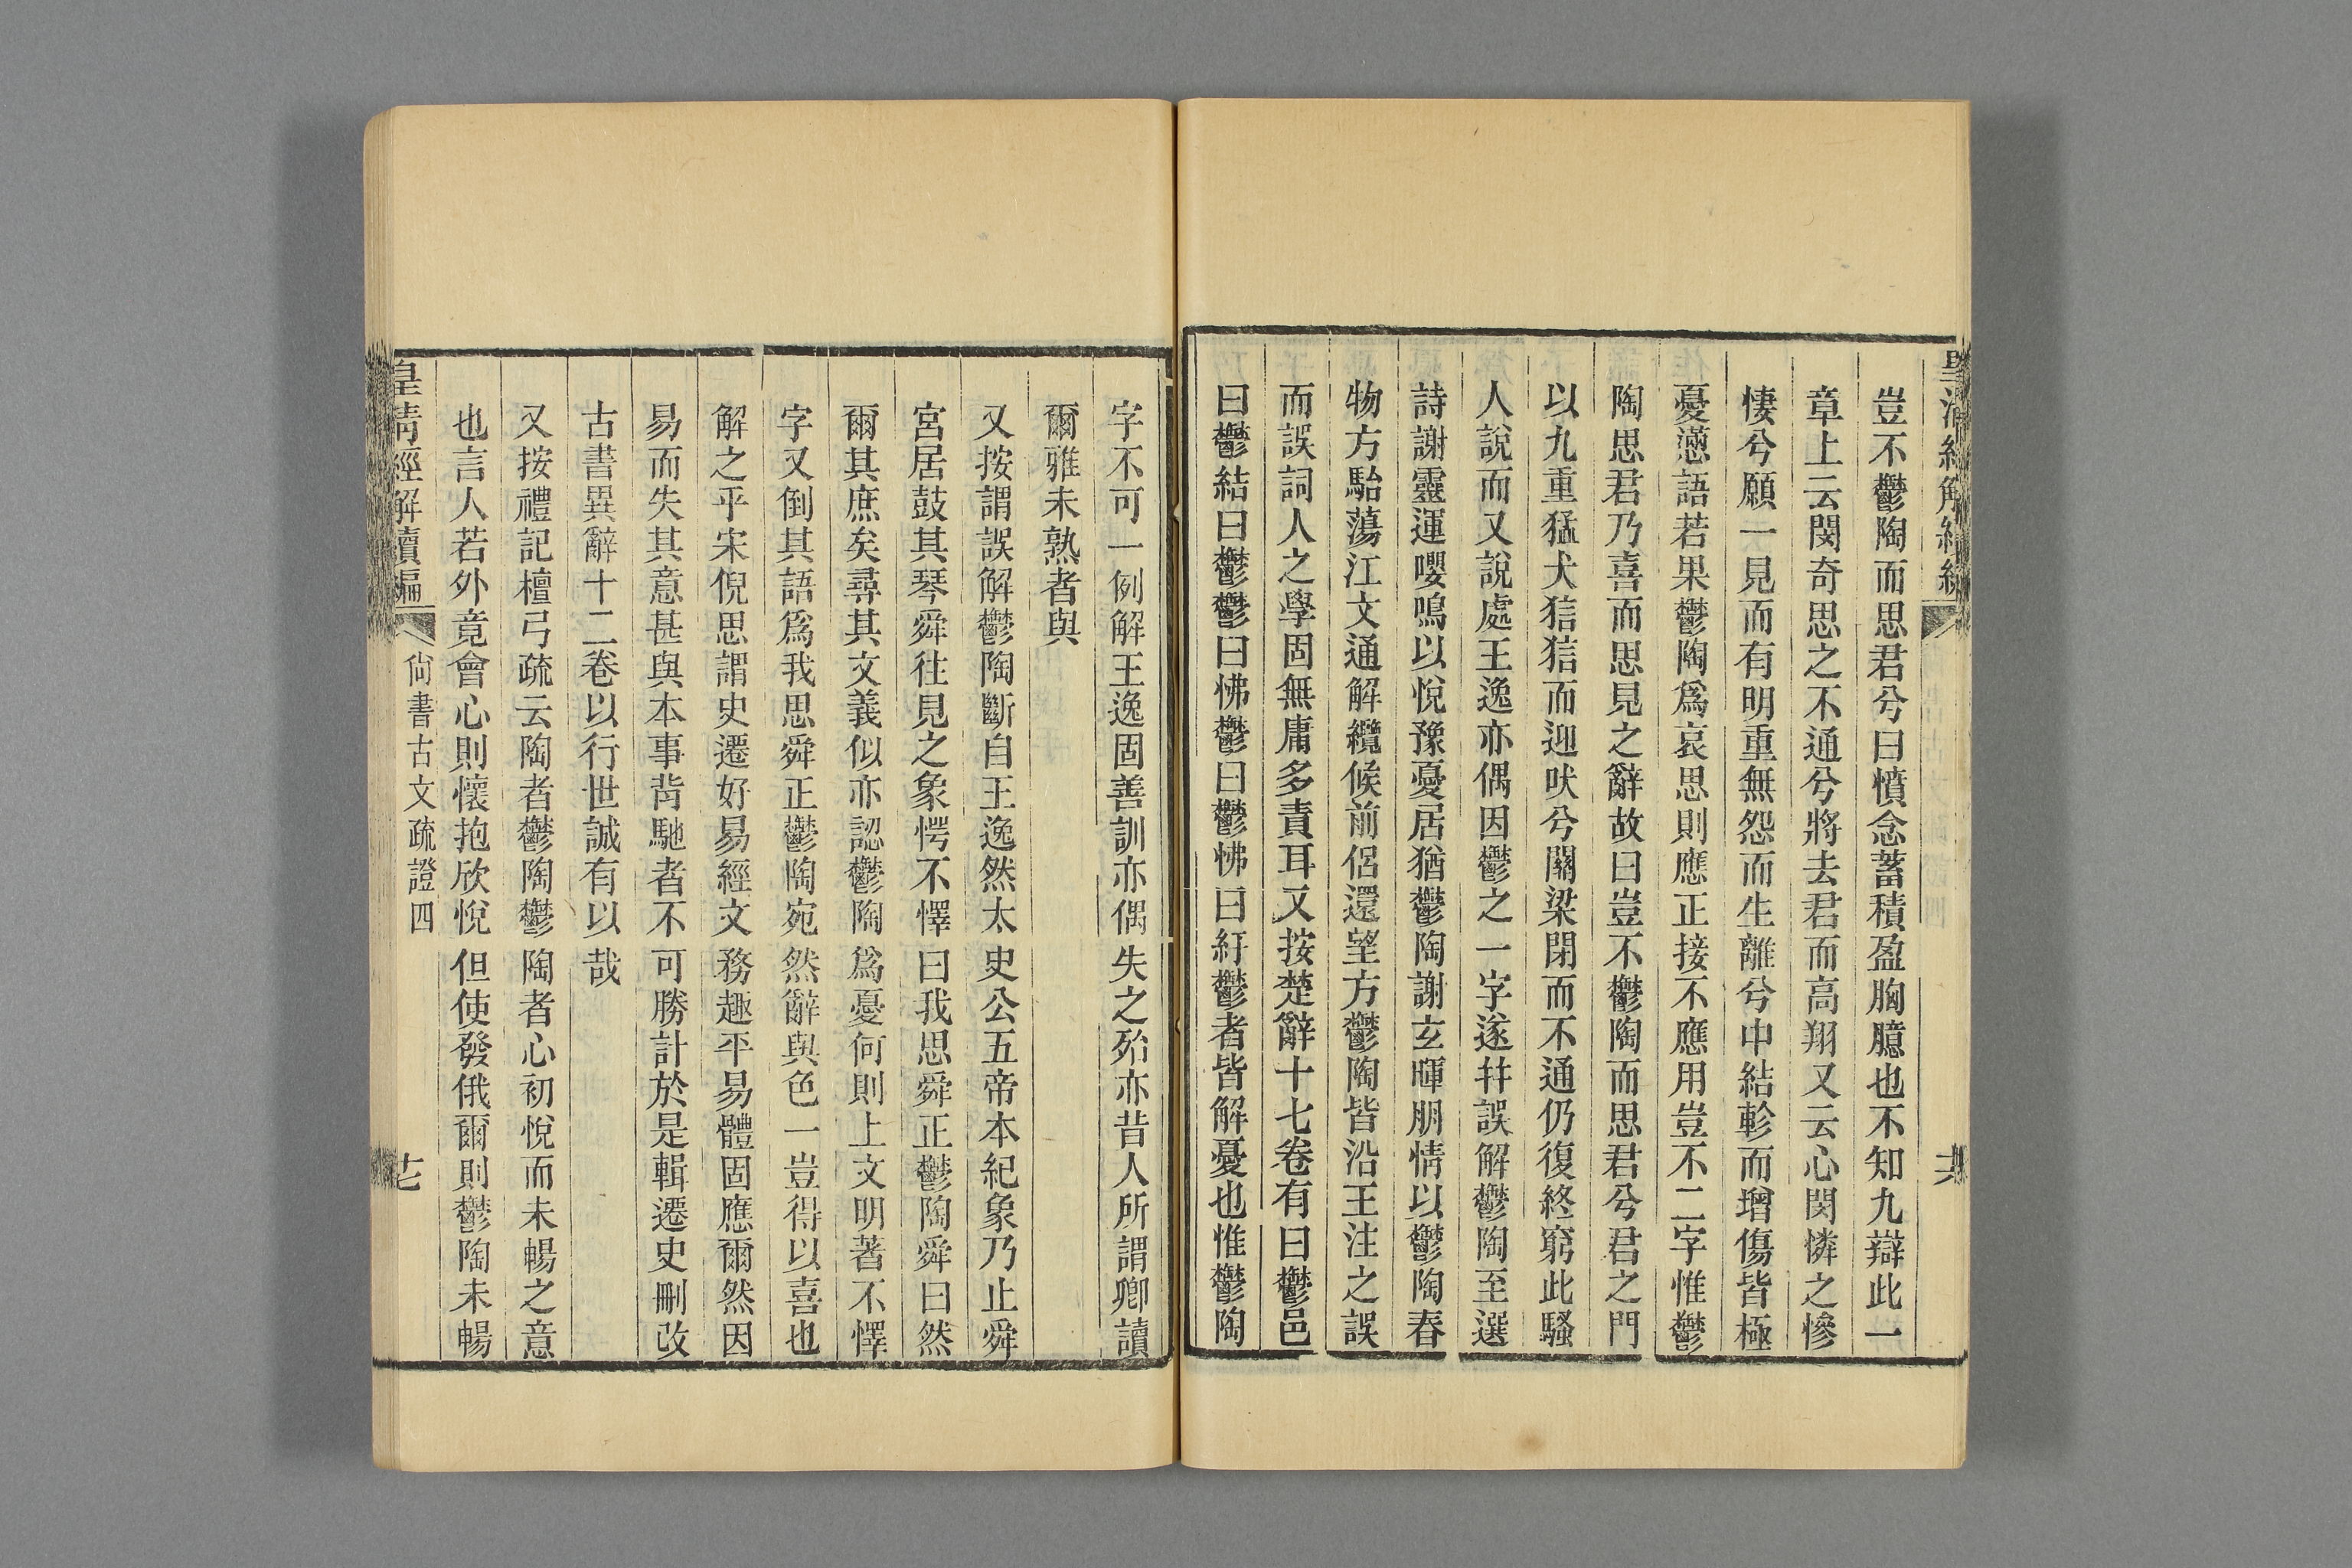 皇清經解續編
六
豈不鬱陶而思君兮曰憤念蓄積盈胸臆也不知九辯此一
章上云閔奇思之不通兮將去君而高翔又云心閔憐之慘
悽兮願一見而有明重無怨而生離兮中結軫而增傷皆極
憂懣語若果鬱陶爲哀思則應正接不應用豈不二字惟鬱
陶思君乃喜而思見之辭故曰豈不鬱陶而思君兮君之門
以九重猛犬狺狺而迎吠兮關梁閉而不通仍復終窮此騷
人說而又說處王逸亦偶因鬱之一字遂幷誤解鬱陶至選
詩謝靈運嚶鳴以悅豫憂居猶鬱陶謝玄暉朋情以鬱陶春
物方駘蕩江文通解纜候前侶還望方鬱陶皆沿王注之誤
而誤詞人之學固無庸多責耳又按楚辭十七卷有曰鬱邑
曰鬱結曰鬱鬱曰怫鬱曰鬱怫曰紆鬱者皆解憂也惟鬱陶
字不可一例解王逸固善訓亦偶失之殆亦昔人所謂卿讀
爾雅未熟者與
又按謂誤解鬱陶斷自王逸然太史公五帝本紀象乃止舜
宮居鼓其琴舜往見之象愕不懌曰我思舜正鬱陶舜曰然
爾其庶矣尋其文義似亦認鬱陶爲憂何則上文明著不懌
字又倒其語爲我思舜正鬱陶宛然辭與色一豈得以喜也
解之乎宋倪思謂史遷好易經文務趣平易體固應爾然因
易而失其意甚與本事背馳者不可勝計於是輯遷史刪改
古書異辭十二卷以行世誠有以哉
又按禮記檀弓疏云陶者鬱陶鬱陶者心初悅而未暢之意
也言人若外竟會心則懷抱欣悅但使發俄爾則鬱陶未暢
皇清經解續編
尙書古文疏證四